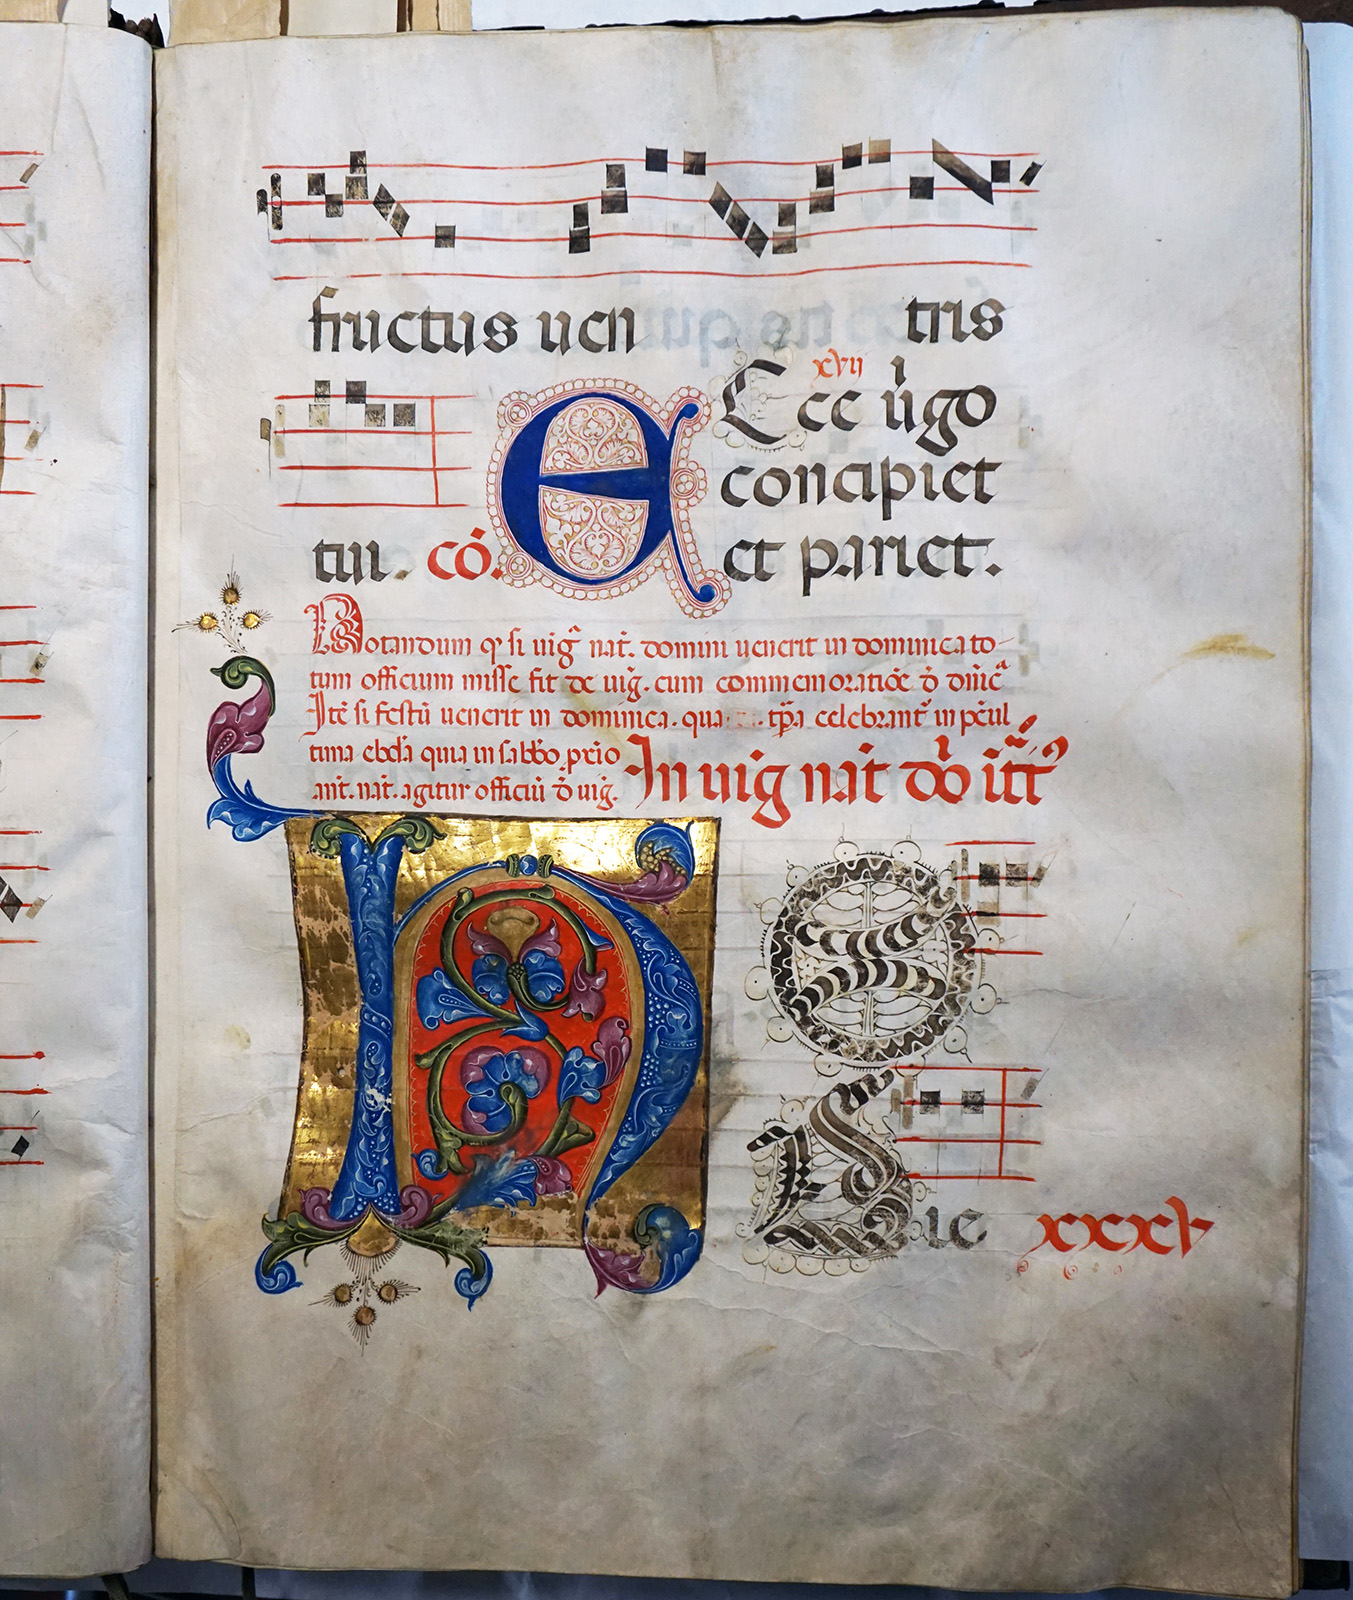 fructus uen tris
xvii
Ecce ũgo
concipiet
tui. cō. et pariet.
Notandum qꝫ si uig̃ nat̃. domini uenerit in dominica to-
tum officium misse fit de uig̃. cum commemoratiõe đ dñicã
Itẽ si festũ uenerit in dominica. qua tp̃a celebrant̃ in pẽul
tima ebđa quia in sabbõ p̃cio
ant. nat. agitur officiũ đ uig̃.
In uig̃ nat̃ dõ
Hodie
xxxv